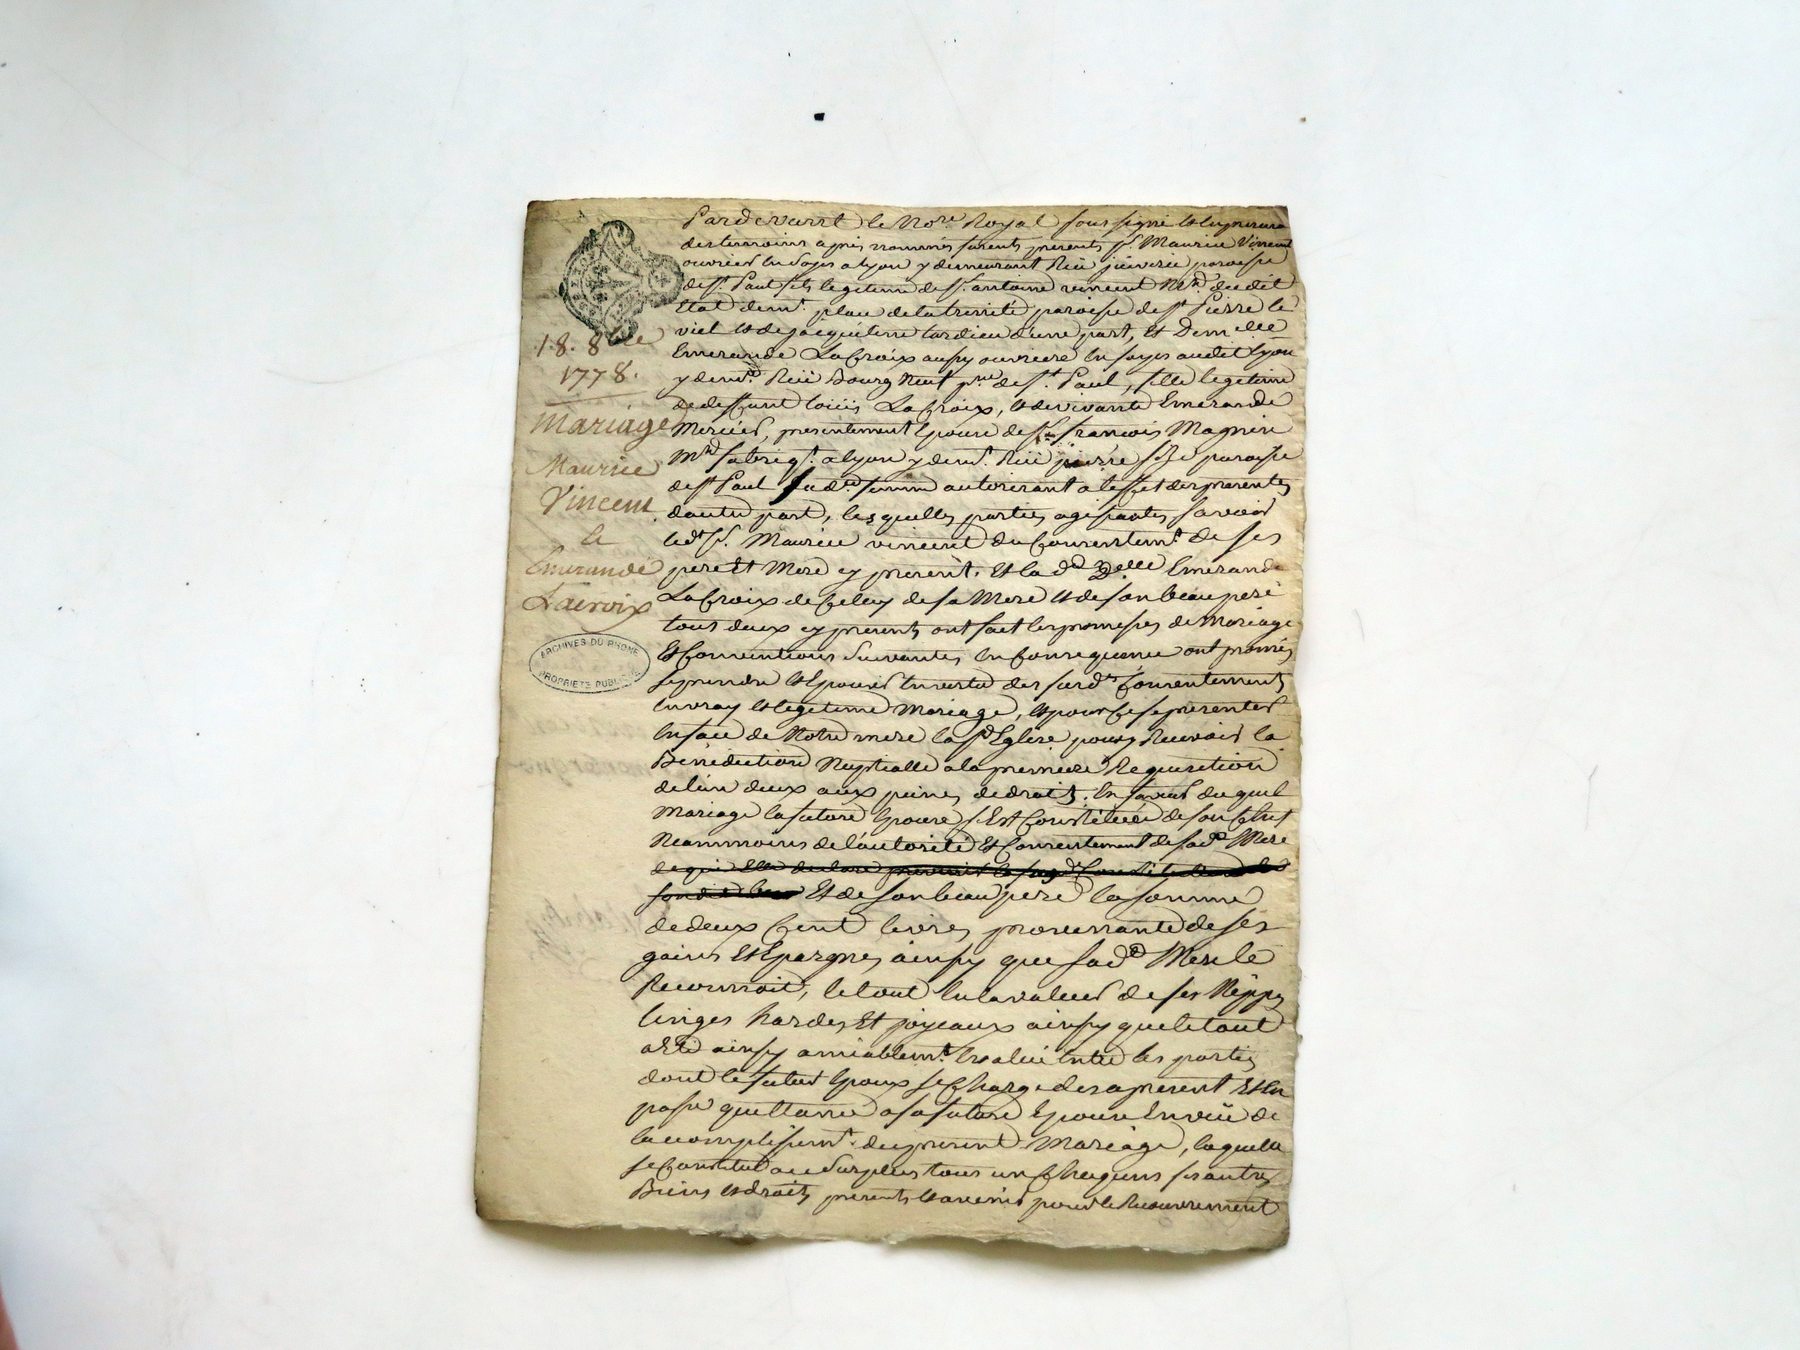 18. 8bre
1778.
Mariage
Maurice
Vincent
&
Emerande
Lacroix
ARCHIVES DU RHONE
PROPRIETE PUBLIQUE
Pardevant le Nore Royal sous signé et en presence
des temoins apres nommés furent presents sr. Maurice Vincent
ouvrier en soyes a Lyon y demeurant Rüe juiverie paroisse
de st. Paul fils legitime de sr. antoine vincent Md. dudit
Etat demt. place de la trinité paroisse de st Pierre le
viel et de jacquéline tardieu d'une part, Et Demelle
Emerande LaCroix aussy ouvriere en soyes audit Lyon
y demte. Rüe Bourg Neuf psse de st. Paul, fille legitime
de deffunt loüis LaCroix, et de vivante Emerande
Mercier, presentement Epouse de sr françois Magnin
Md fabriqt. a lyon y demt. Rüe pierre size paroisse
de st Paul sade. femme autorisant a l'effet des presentes
dautre part, lesquelles parties agissantes savoir
led. sr. Maurice vincent du Consentemt. de ses
pere et Mere cy presents. Et la de. Delle Emerande
LaCroix de Celuy de sa Mere et de son beau pere
tous deux cy presents ont fait les promesses de Mariage
et Conventions suivantes, en Consequence ont promis
se prendre et Epouser en vertu des susds. Consentements
en vray et legitime Mariage, et pour Ce se presenter
en face de Notre mere la ste Eglise pour y Recevoir la
Bénédiction Nuptialle a la premiere Requisition
de l'un deux aux peines de droits. En faveur duquel
Mariage la future Epouse s'Est Constituée de son Chef
Neammoins de l'autorité et Consentement de sade. Mere
de qui Elle declare
Et de son beau pere la somme
de deux Cent livres provenante de ses
gains et Epargnes ainsy que sade Mere le
Reconnoit, le tout en la valeur de ses Nippes
linges hardes et joyeaux ainsy que le tout
a Eté ainsy amiablemt. Evalué entre les parties
dont le futur Epoux se Charge des a present et en
passe quittance a sa future Epouse En vüe de
laccomplissemt. du present Mariage, laquelle
se Constitue au surplus tous un Chacuns ses autres
Biens et droits presents et avenir pour le Recouvrement